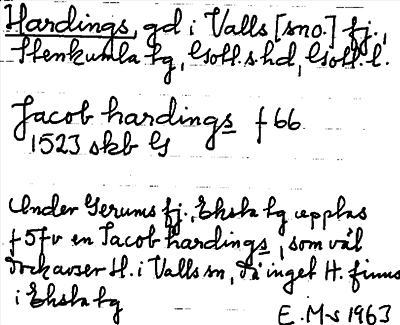 Hardings, gd i Valls [sno.] fj.,
Stenkumla tg, Gotl. s. hd, Gotl. l.
Jacob hardings f 66
1523 skb G
Under Gerums fj., Eksta tg upptas
f 5fv en Jacob hardings, som väl
dock avser H. i Valls sn, då inget H. finns
i Eksta tg
E. M-s 1963